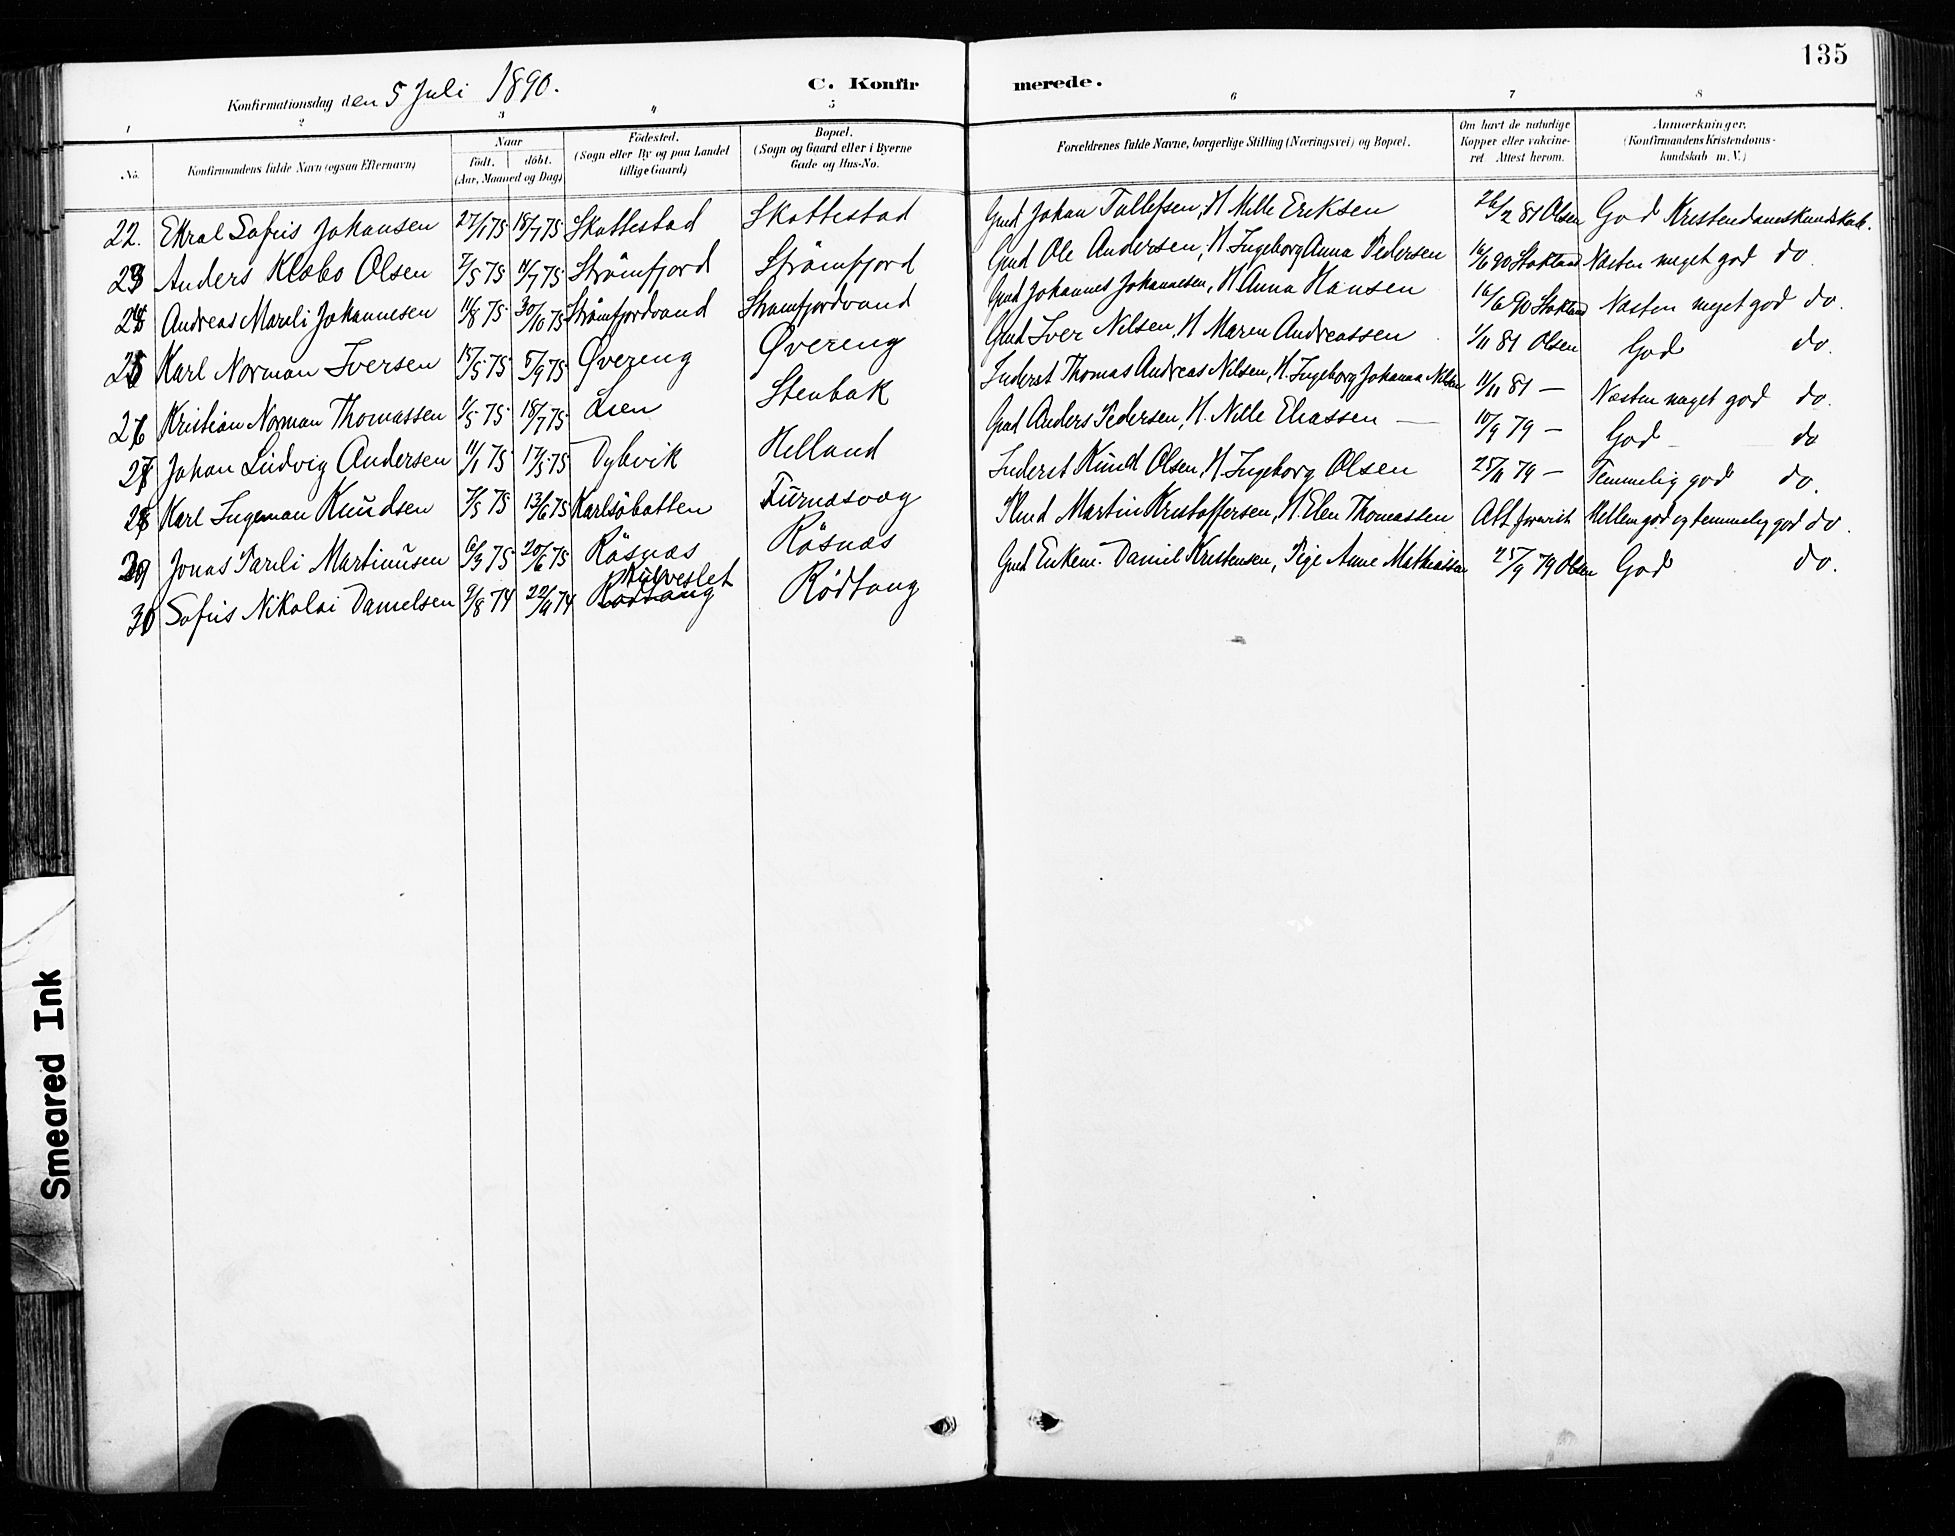 135
Konfirmationsdag den 5 Juli 1890.
C. Konfirmerede.
1 2 3 4 5 6 7 8
No.
Konfirmandens fulde Navn (ogsaa Efternavn)
Naar
født. døbt.
(Aar, Maaned og Dag)
Fødested.
(Sogn eller By og paa Landet
tillige Gaard)
Bopæl.
(Sogn og Gaard eller i Byerne
Gade og Hus-No.
Forældrenes fulde Navne, borgerlige Stilling (Næringsvei) og Bopæl.
Om havt de naturlige
Kopper eller vakcine-
ret Attest herom.
Anmærkninger.
(Konfirmandens Kristendoms-
kundskab m. V.)
22. Ekral Sofus Johansen 27/1 75 18/7 75 Skottestad Skottestad Gmd Johan Tollefsen, H Mille Eriksen 26/2 81 Olsen God Kristendomskundskab.
23 Anders Klæbo Olsen 7/5 75 11/7 75 Strømfjord Strømfjord Gmd Ole Andersen, H Ingeborg Anna Pedersen 16/6 90 Stokland Næsten meget god do.
24 Andreas Marili Johannesen 11/8 75 30/10 75 Strømfjordvand Strømfjordvand Gmd Johannes Johannesen, H Anna Hansen 16/6 90 Stokland Næsten meget god do.
25 Karl Norman Iversen 15/5 75 5/9 75 Øvereng Øvereng Gmd Iver Nilsen, H Maren Andreassen 1/11 81 Olsen God do.
26 Kristian Norman Thomassen 1/5 75 18/7 75 Lien Stenbak Inderst Thomas Andreas Nilsen, H. Ingeborg Johanna Nilsen 11/11 81 — Næsten meget god do.
27 Johan Ludvig Andersen 11/1 75 17/5 75 Dybvik Helland Gmd Anders Pedersen, H. Nille Eliassen — 10/9 79 — God — do
28 Karl Ingeman Knudsen 7/5 75 13/6 75 Karlsøbotten Furnæsvaag Inderst Knud Olsen, H. Ingeborg Olsen 25/11 79 — Temmelig god do.
29 Jonas Pareli Martinusen 6/3 75 20/6 75 Røsnæs Røsnæs Martin Kristoffersen, H. Elen Thomassen Att forevist Mellem god og temmelig god do.
30 Sofus Nikolai Danielsen 9/8 74 22/11 74 Rødtang Rødtang Gmd Enkem. Daniel Kristensen, Pige Anne Mathiassen 25/9 79 Olsen God do.
Smeared Ink